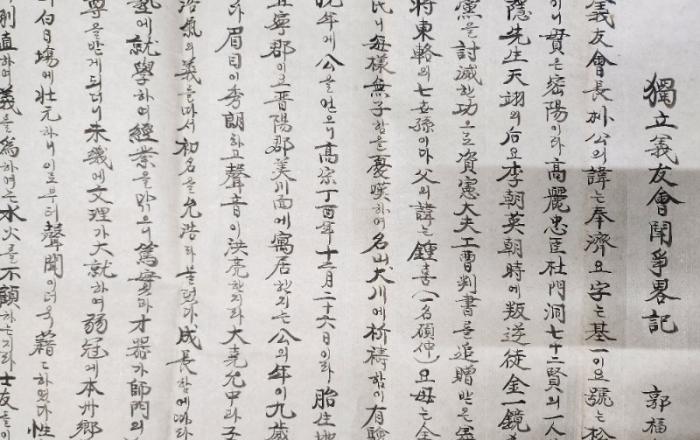 獨立義友會鬪爭畧記 郭福
義友會長朴公의 諱는 奉濟요 字는 基一이요 號는 松
이니 貫은 密陽이라 高麗忠臣杜門洞七十二賢의 一人
隱先生天翊의 后요 李朝英朝時에 叛逆徒金一鏡
黨을 討滅한 功으로 資憲大夫工曹判書를 追贈받은
將東輅의 七世孫이다 父의 諱는 鍾喜(一名碩仲)요 母는 金
氏니 每樣無子함을 憂嘆하여 名山大川에 祈禱함이 有驗
晩年에 公을 얻으니 高宗丁酉年十二月二十六日이라 胎生地
宜寧郡이로 晋陽郡美川面에 寓居한지는 公의 年이 九歲
라 眉目이 秀朗하고 聲音이 洪亮한지라 大堯允中과 孟
浩氣의 義를 따서 初名을 允浩라 불렀다 成長함에 따라
塾에 就學하여 經業을 닦으니 篤實과 才器가 師門의
尊을 받게 되더니 未幾에 文理가 大就하여 弱冠에 本州鄕
白日場에 壯元하니 이로부터 聲聞이 더욱 藉々하였다 性
剛直하여 義을 爲하여는 水火를 不顧하는지라 士友들이